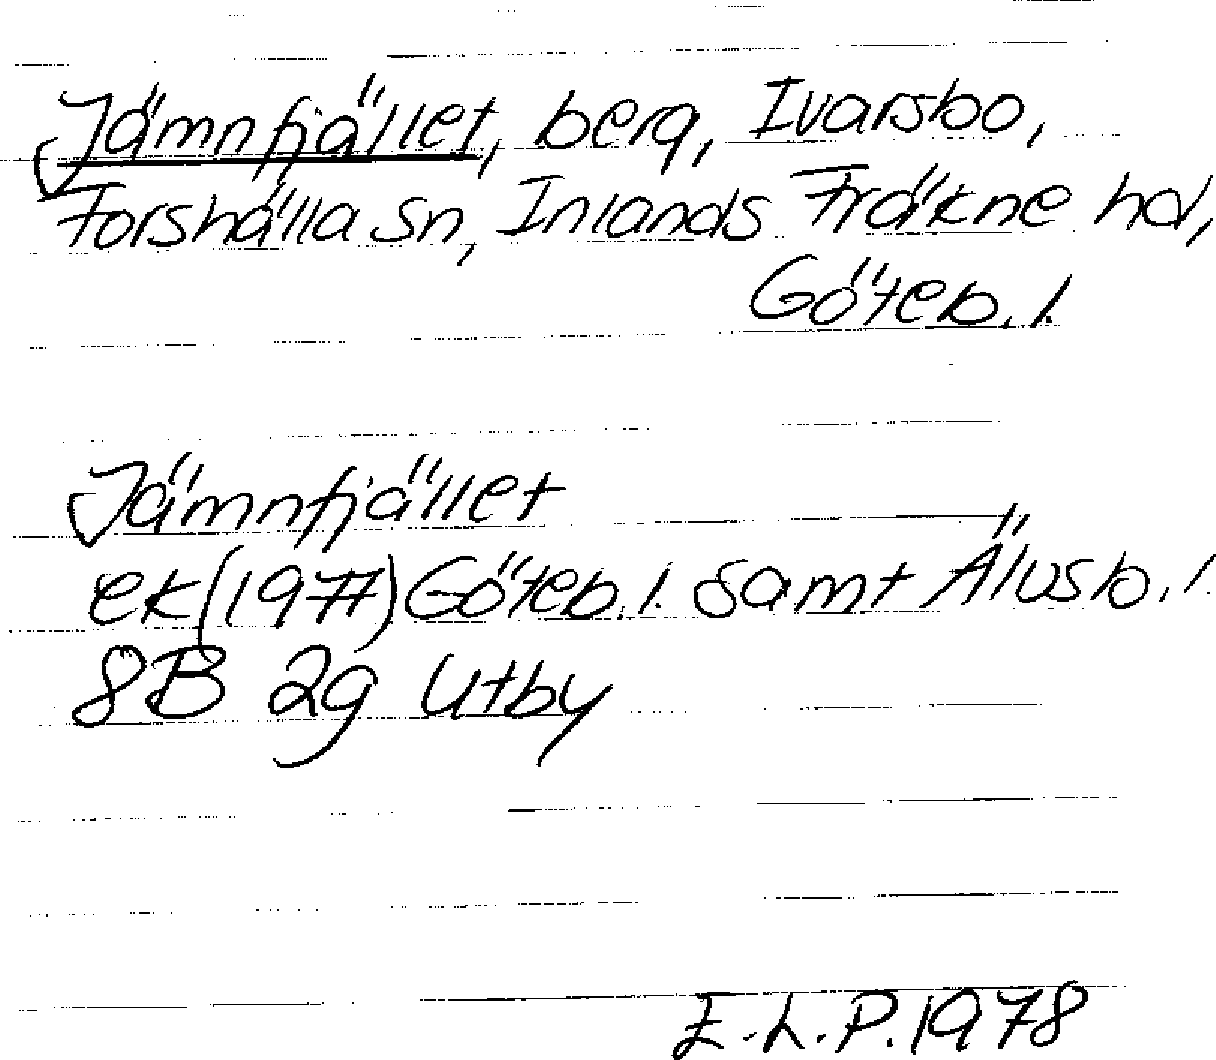 Jämnfjället, berg, Ivarsbo,
Forshälla sn, Inlands Fräkne hd,
Göteb. l.
Jämnfjället
ek (1977) Göteb. l. samt Älvsb. l.
8B 2g Utby
E.L.P. 1978